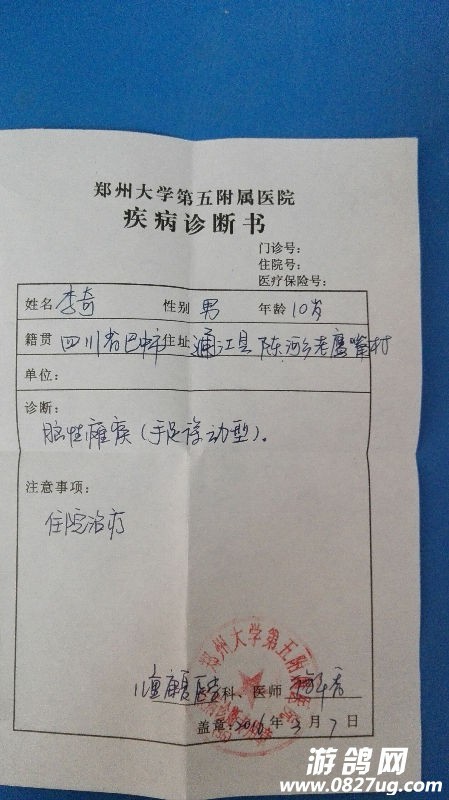 郑州大学第五附属医院
疾病诊断书
门诊号：
住院号：
医疗保险号：
姓名 李奇 性别 男 年龄 10岁
籍贯 四川省巴中市 住址 通江县陈河乡老鹰嘴村
单位：
诊断：
脑性瘫痪（手足徐动型）。
注意事项：
住院治疗
郑州大学第五附属医院
儿童康复医学科 医师
盖章：2016年3月7日
游鸽网
www.0827ug.com